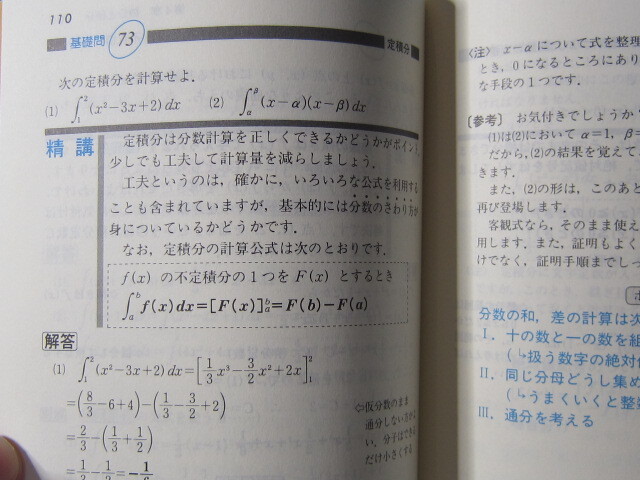 110
基礎問 73 定積分
次の定積分を計算せよ.
(1) ∫₁²(x²−3x+2)dx (2) ∫_α^β(x−α)(x−β)dx
精講
定積分は分数計算を正しくできるかどうかがポイント.
少しでも工夫して計算量を減らしましょう.
工夫というのは,確かに,いろいろな公式を利用する
ことも含まれていますが,基本的には分数のさわり方が
身についているかどうかです.
なお,定積分の計算公式は次のとおりです.
f(x) の不定積分の1つを F(x) とするとき
∫_a^b f(x)dx=[F(x)]_a^b=F(b)−F(a)
解答
(1) ∫₁²(x²−3x+2)dx=[1/3 x³−3/2 x²+2x]₁²
=(8/3−6+4)−(1/3−3/2+2)
=2/3−(1/3+1/2)
=1/3−1/2=−1/6
⇦仮分数のまま
通分しない
い.分子は
だけ小さくする
〈注〉 x−α について式を整理
とき,0になるところにあり
な手段の1つです.
[参考] お気付きでしょうか
(1)は(2)において α=1, β=
だから,(2)の結果を覚えて
きます.
また,(2)の形は,このあと
再び登場します.
客観式なら,そのまま使え
用します.また,証明もよく
けでなく,証明手順までしっ
分数の和,差の計算は次
I. 十の数と一の数を組
(↳扱う数字の絶対値
II. 同じ分母どうし集め
(↳うまくいくと整数
III. 通分を考える